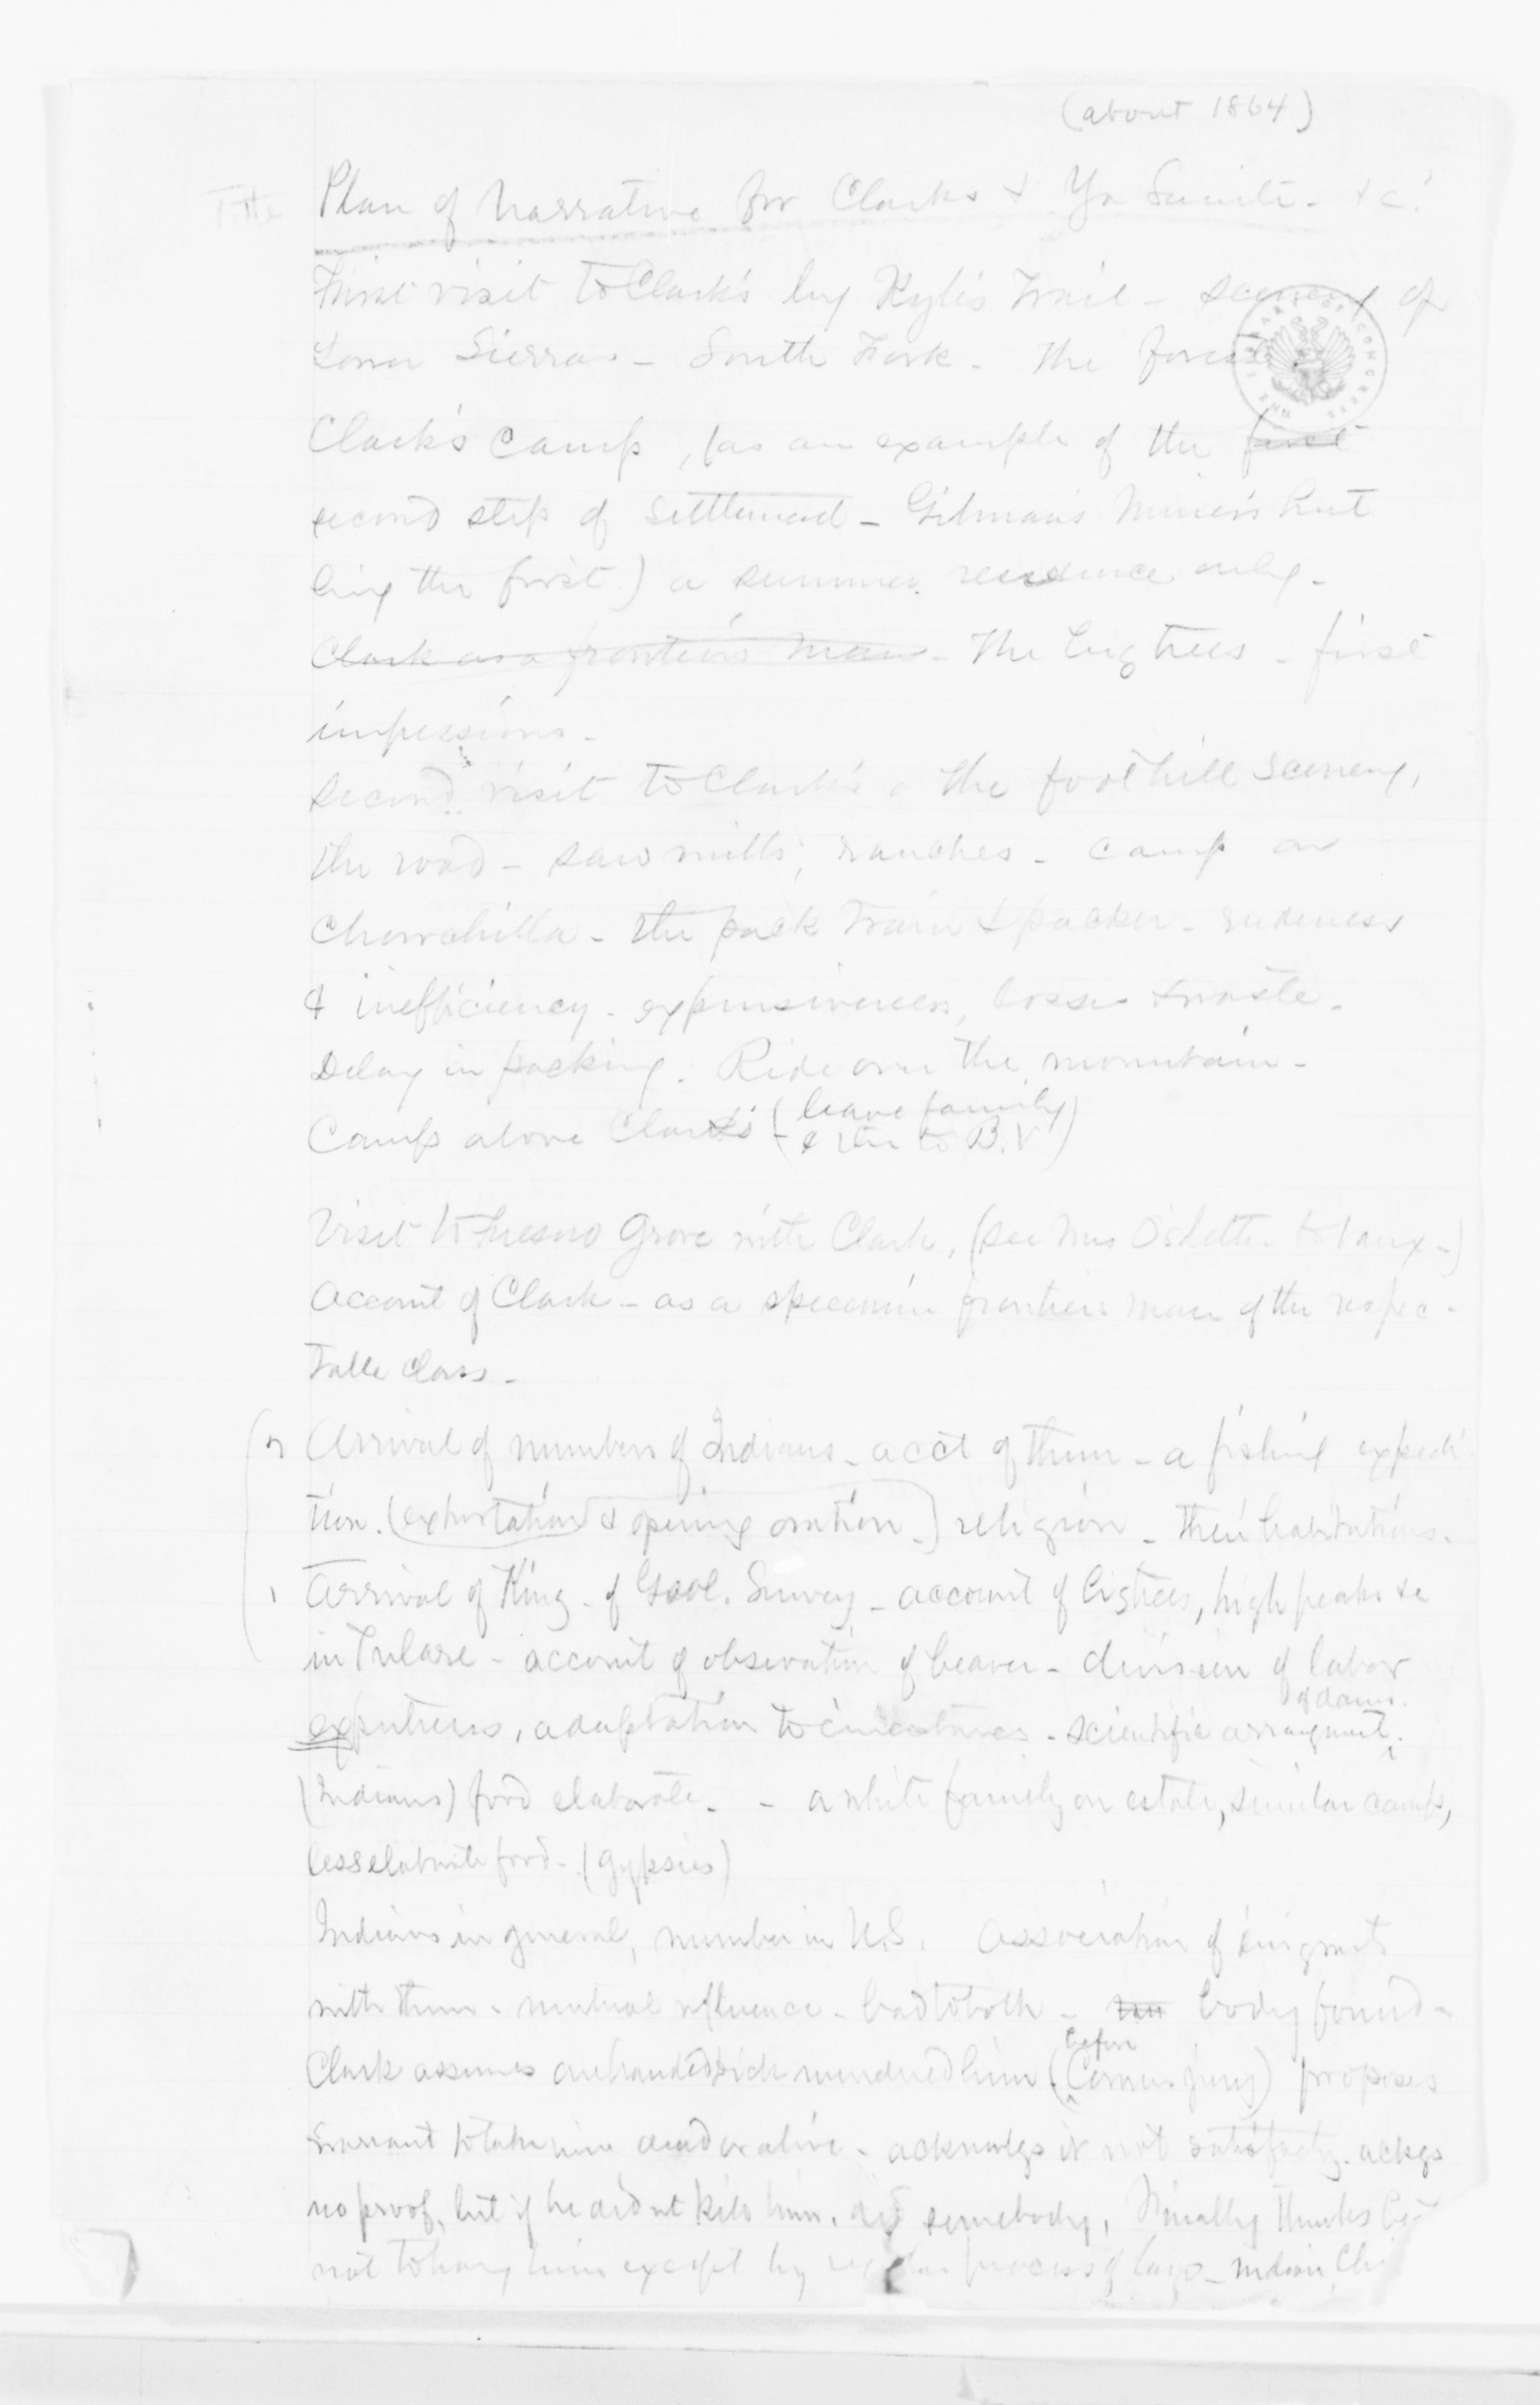 (about 1864)
Title Plan of Narrative for Clarks & Yo Semite - &c.
First visit to Clark's by Kyle's Trail - scenery of
Lower Sierras - South Fork - The forest
THE LIBRARY OF CONGRESS
Clark's camp, (as an example of the first
second step of settlement - Gilman's Miner's hut
being the first.) a summer residence only -
Clark as a frontier's man - The big trees - first
impressions -
Second visit to Clark's - the foothill scenery,
the road - saw mills, ranches - camp on
Chowchilla - the pack train & packer - rudeness
& inefficiency - expensiveness, losses & waste -
Delay in packing. Ride over the mountain -
Camp above Clark's - (leave family
& to B.V)
Visit to Fresno Grove with Clark, (see Mrs O's letter to Vaux -)
Account of Clark - as a specimen frontiers man of the respec-
table class -
2 Arrival of numbers of Indians - acct of them - a fishing expedi
tion. (exhortation & opening oration -) religion - their habitations -
1 Arrival of King - of Geol. Survey - account of big trees, high peaks &c
in Tulare - account of observation of beaver - division of labor
expertness, adaptation to - scientific arrangment of dams.
(Indians) food elaborate - - a white family on estate, similar camp,
less elaborate food - (gypsies)
Indians in general, number in U.S. Association of emigrants
with them - mutual influence - bad to both - body found -
Clark assumes one handed Dick murdered him (before Corner's jury) proposes
warrant to take him dead or alive - acknwlgs it not satisfacty. acklgs
no proof, but if he did nt kill him, did somebody, finally thinks
not to hang him except by regular process of law - Indian